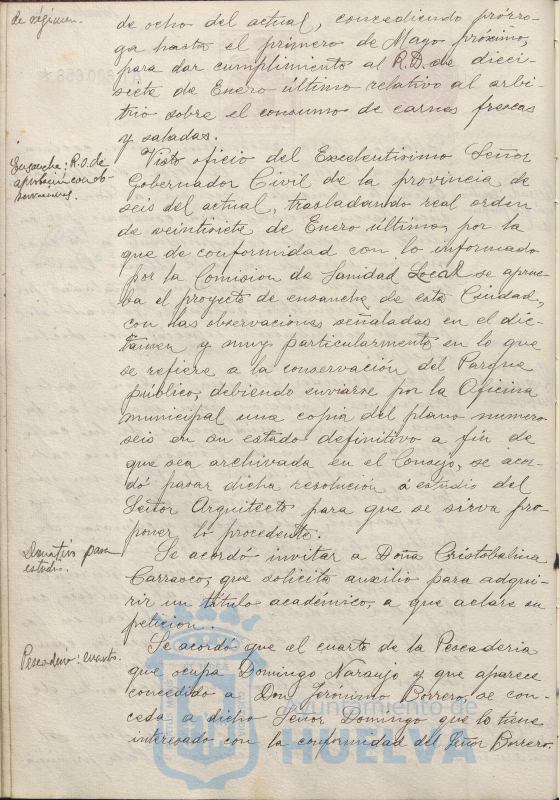 de régimen.
de ocho del actual, concediendo prórro-
ga hasta el primero de Mayo próximo,
para dar cumplimiento al R.D. de dieci-
siete de Enero último relativo al arbi-
trio sobre el consumo de carnes frescas
y saladas.
Ensanche: R.O. de
aprobación con ob-
servaciones.
Visto oficio del Excelentísimo Señor
Gobernador Civil de la provincia de
seis del actual, trasladando real orden
de veintisiete de Enero último, por la
que de conformidad con lo informado
por la Comision de Sanidad Local se aprue-
ba el proyecto de ensanche de esta Ciudad,
con las observaciones señaladas en el dic-
tamen y muy particularmente en lo que
se refiere a la conservación del Parque
público, debiendo enviarse por la Oficina
municipal una copia del plano numero
seis en su estado definitivo a fin de
que sea archivada en el Consejo, se acor-
dó pasar dicha resolución á estudio del
Señor Arquitecto para que se sirva pro-
poner lo procedente.
Donativo para
estudio.
Se acordó invitar a Doña Cristobalina
Carrasco, que solicita auxilio para adqui-
rir un título académico, a que aclare su
petición.
Pescadería: cuarto.
Se acordó que el cuarto de la Pescaderia
que ocupa Domingo Naranjo y que aparece
concedido a Don Jerónimo Borrero, se con-
ceda a dicho Señor Domingo que lo tiene
interesado con la conformidad del Señor Borrero.
Ayuntamiento de
HUELVA